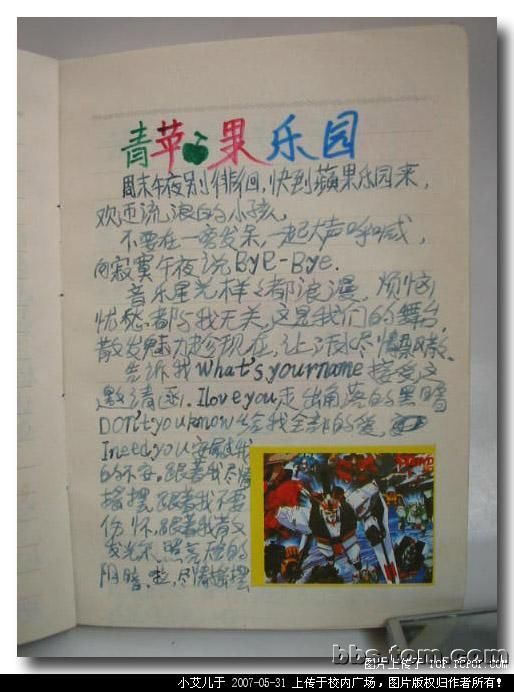 青苹果乐园
周末午夜别徘徊,快到蘋果乐园来,
欢迎流浪的小孩。
不要在一旁发呆,一起大声呼喊,
向寂寞午夜说BYE-Bye.
音乐星光样样都浪漫,烦恼
忧愁都与我无关,这是我们的舞台,
散发魅力趁现在,让汗水尽情
告诉我What's your name接受这
邀请函.I love you走出角落的黑暗
DON't you know给我全部的爱,
I need you安慰我
的不安.跟着我尽情
摇摆.跟着我不要
伤怀.跟着我散文
发光芒.照亮你的
阴暗.啦,尽情摇摆
bbs.tom.com
图片上传于 tof.tofor.com
小艾儿于 2007-05-31 上传于校内广场,图片版权归作者所有!